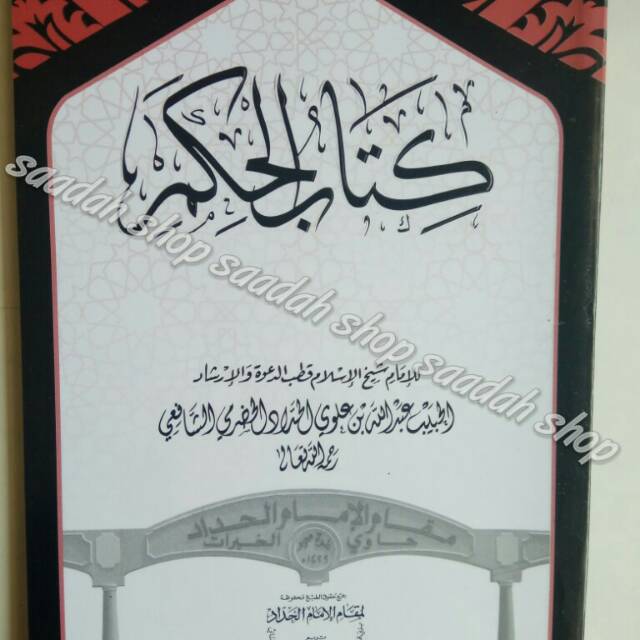 كتاب الحكم
saadah shop saadah shop saadah shop
للإمام شيخ الإسلام قطب الدعوة والإرشاد
الحبيب عبدالله بن علوي الحداد الحضرمي الشافعي
رحمه الله تعالى
مقام الإمام الحداد
حاوي الخيرات
لمقام الإمام الحداد